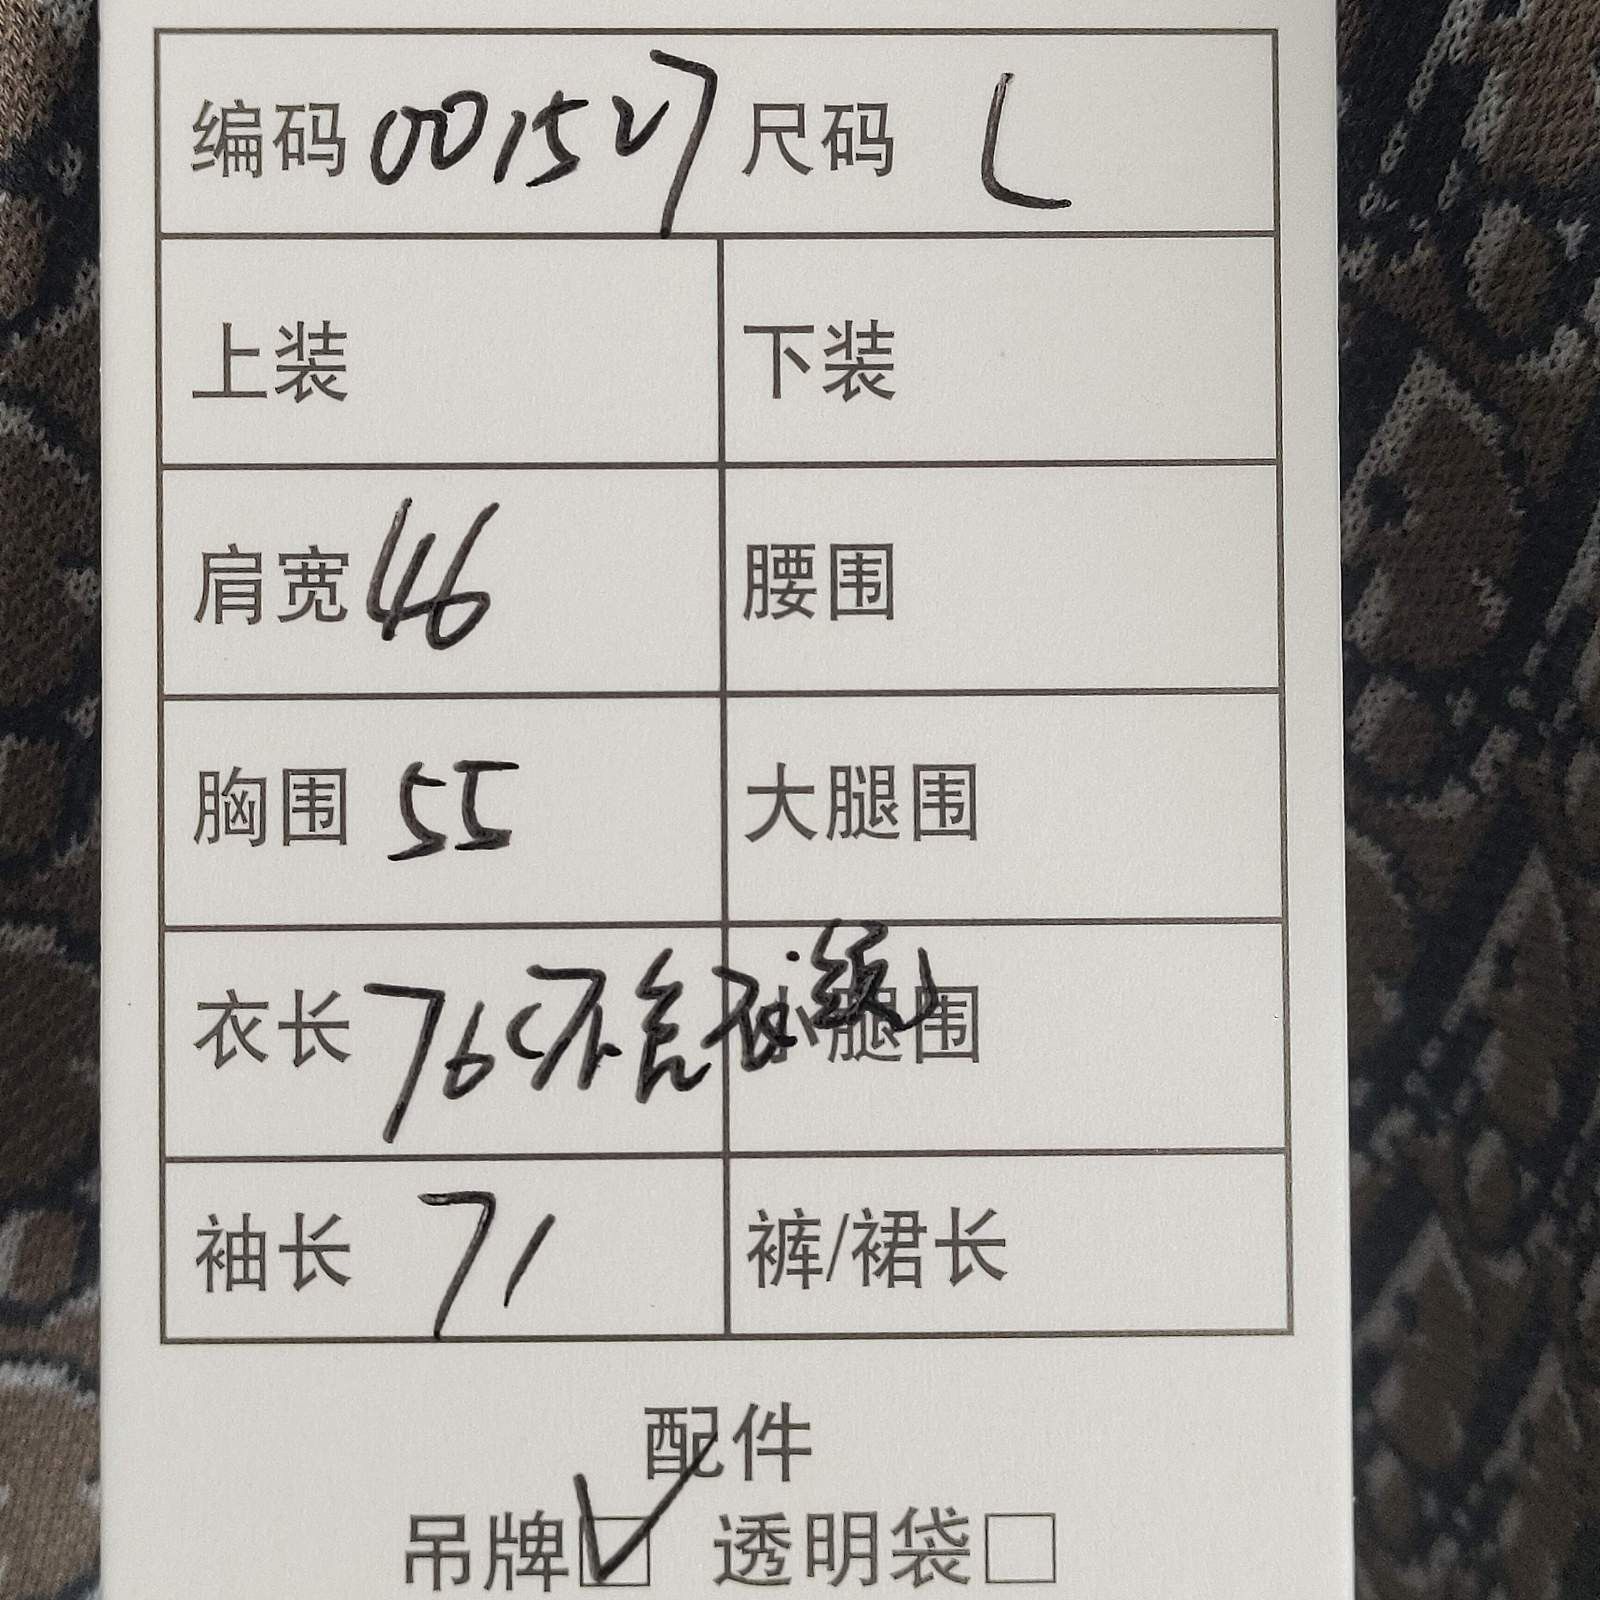 编码 001527 尺码 L
上装 下装
肩宽 46 腰围
胸围 55 大腿围
衣长 76(不含衣领) 小腿围
袖长 71 裤/裙长
配件
吊牌☑ 透明袋□